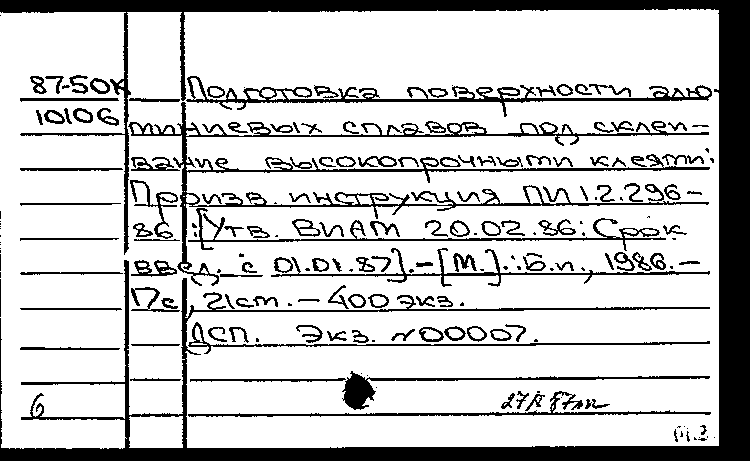 87-50К Подготовка поверхности алю-
10106 миниевых сплавов под склеи-
вание высокопрочными клеями:
Произв. инструкция ПИ 1.2.296-
86 :[Утв. ВИАМ 20.02.86: Срок
введ. с 01.01.87].-[М.].:Б.и., 1986.-
17с, 21см. - 400 экз.
ДСП. Экз. N00007.
6